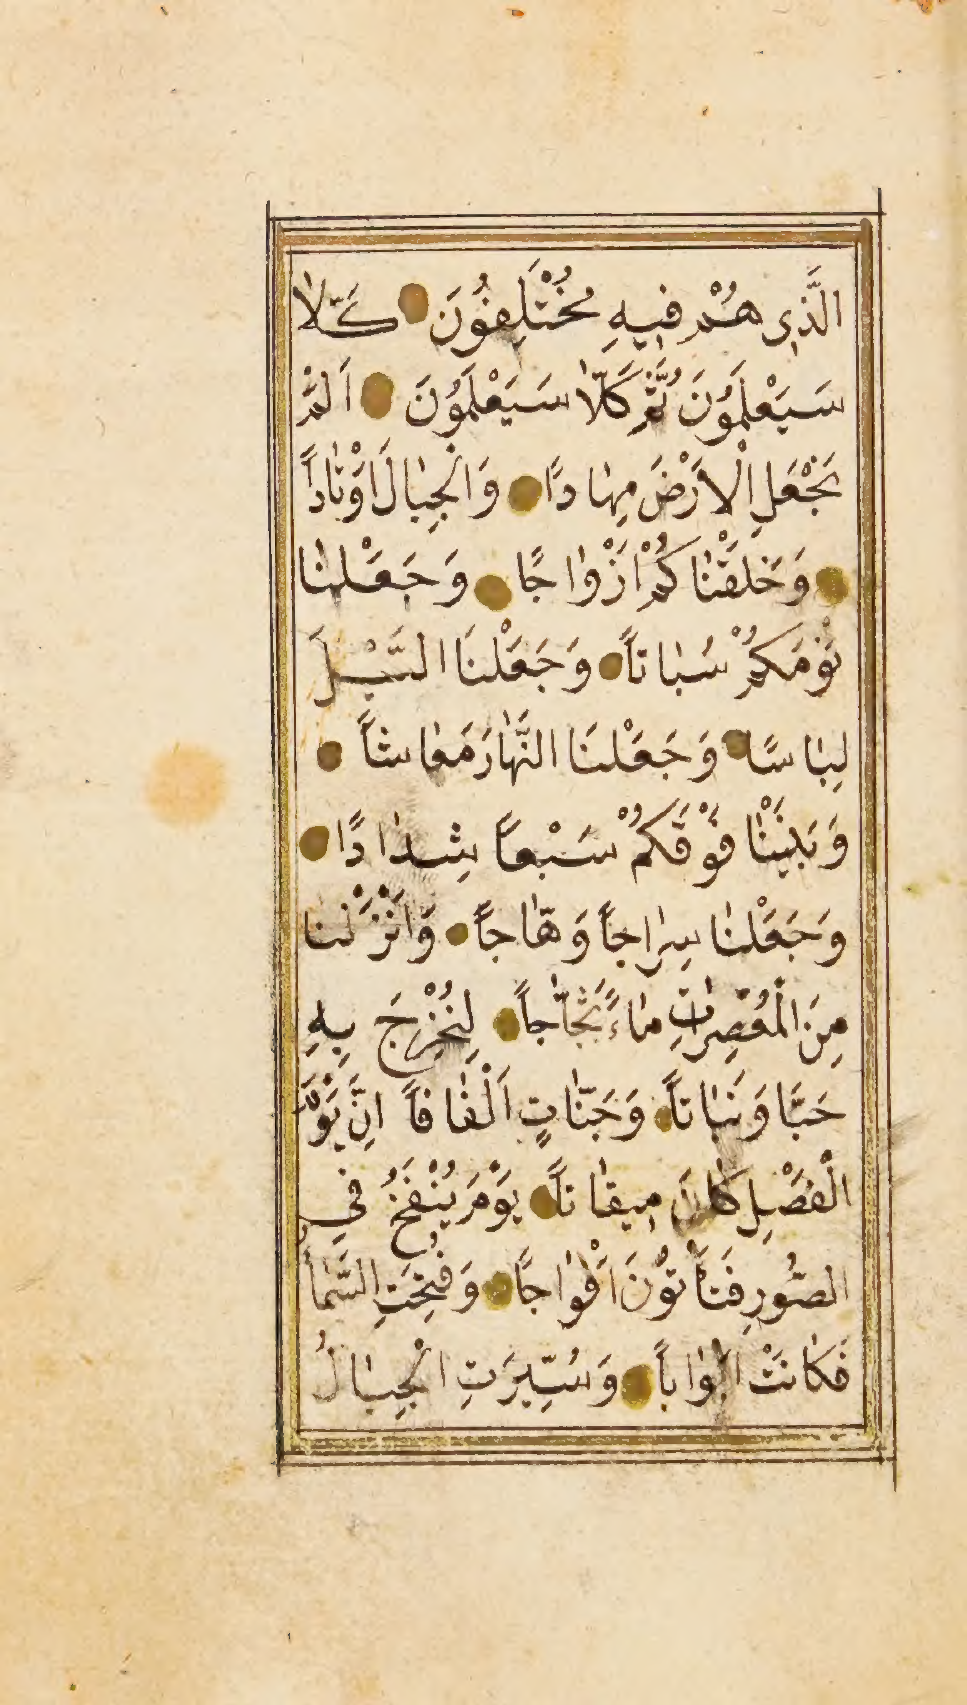 الَّذِى هُمْ فِيهِ مُخْتَلِفُونَ كَلَّا
سَيَعْلَمُونَ ثُمَّ كَلَّا سَيَعْلَمُونَ اَلَمْ
نَجْعَلِ الْاَرْضَ مِهَادًا وَالْجِبَالَ اَوْتَاداً
وَخَلَقْنَاكُمْ اَزْوَاجًا وَجَعَلْنَا
نَوْمَكُمْ سُبَاتاً وَجَعَلْنَا الَّيْلَ
لِبَاسًا وَجَعَلْنَا النَّهَارَ مَعَاشاً
وَبَنَيْنَا فَوْقَكُمْ سَبْعاً شِدَادًا
وَجَعَلْنَا سِرَاجاً وَهَّاجاً وَاَنْزَلْنَا
مِنَ الْمُعْصِرَاتِ مَاءً ثَجَّاجاً لِنُخْرِجَ بِهِ
حَبًّا وَنَبَاتاً وَجَنَّاتٍ اَلْفَافاً اِنَّ يَوْمَ
الْفَصْلِ كَانَ مِيقَاتاً يَوْمَ يُنْفَخُ فِى
الصُّورِ فَتَأْتُونَ اَفْوَاجًا وَفُتِحَتِ السَّمَاءُ
فَكَانَتْ اَبْوَاباً وَسُيِّرَتِ الْجِبَالُ